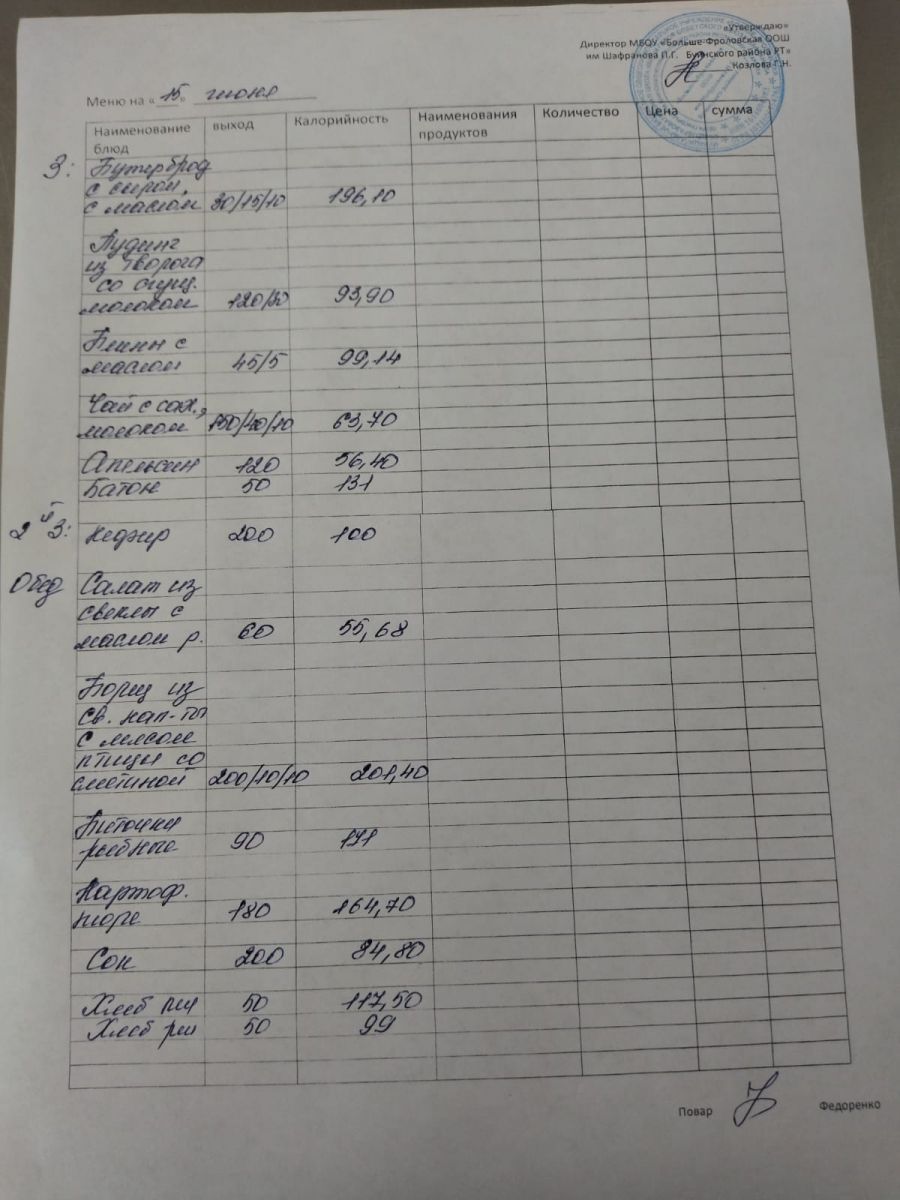 «Утверждаю»
Директор МБОУ «Больше-Фроловская ООШ
им Шафранова П.Г. Буинского района РТ»
Козлова Г.Н.
Меню на « 15 » июня
Наименование блюд выход Калорийность Наименования продуктов Количество Цена сумма
З: Бутерброд
с сыром,
с маслом 30/15/10 196,10
Пудинг
из творога
со сгущ.
молоком 120/30 93,90
Блины с
маслом 45/5 99,14
Чай с сах.,
молоком 150/40/10 63,70
Апельсин 120 56,40
Батон 50 131
2й З: Кефир 200 100
Обед Салат из
свеклы с
маслом р. 60 55,68
Борщ из
св. кап-ты
с мясом
птицы со
сметаной 200/10/10 201,40
Биточки
рыбные 90 171
Картоф.
пюре 180 164,70
Сок 200 84,80
Хлеб пш 50 117,50
Хлеб рш 50 99
Повар Федоренко